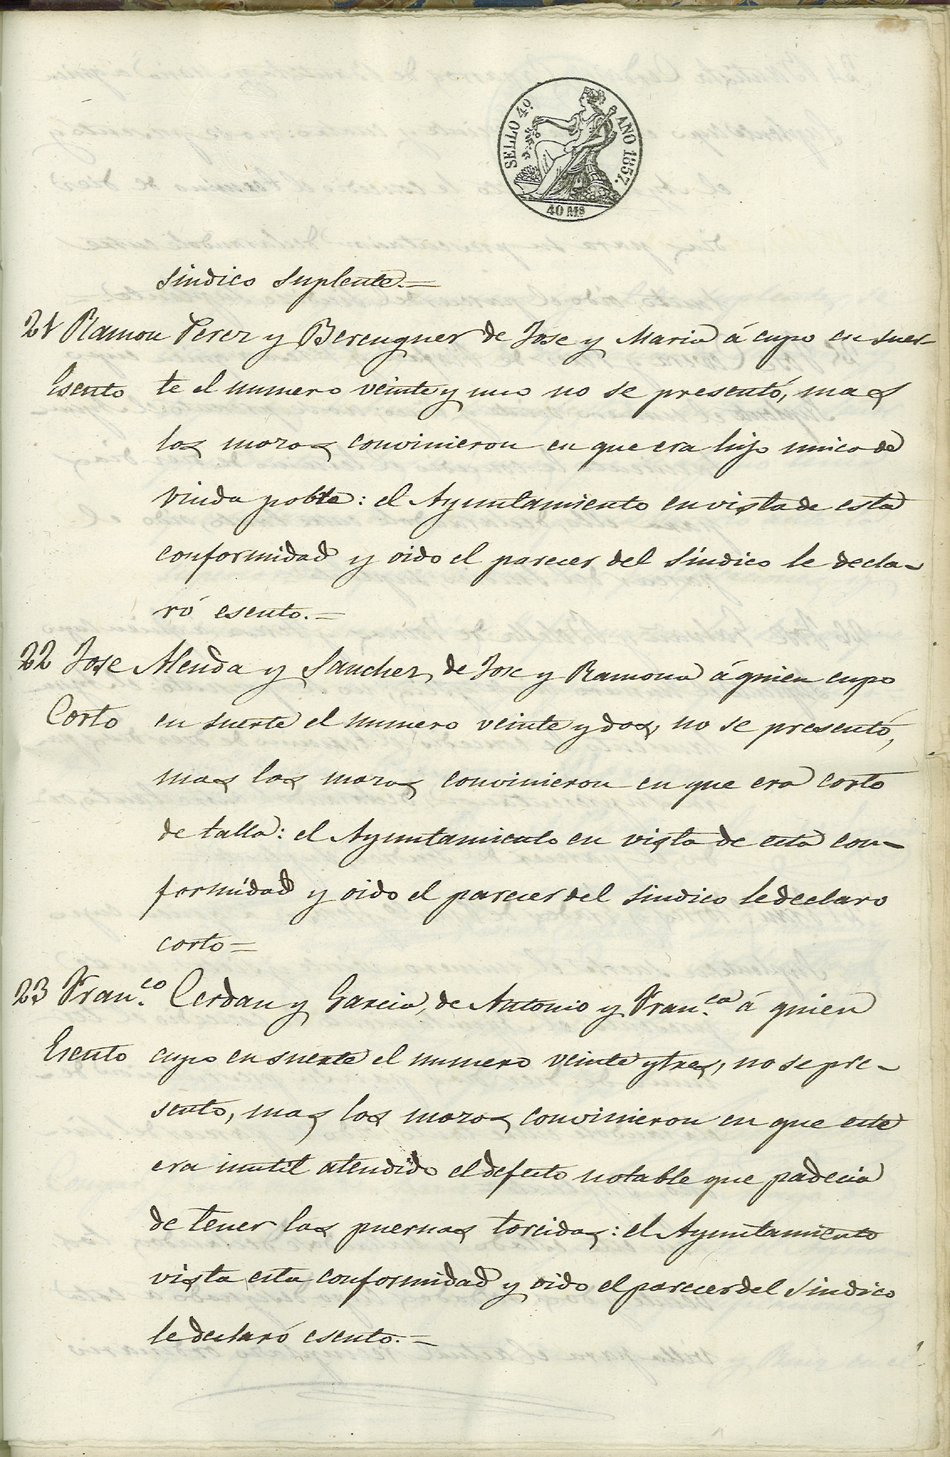 SELLO 4º AÑO 1857.
40 Ms
sindico suplente.=
21 Ramon Perez y Berenguer de Jose y Maria á cupo en suer-
Esento te el numero veinte y uno no se presentó, mas
los mozos convinieron en que era hijo unico de
viuda pobre: el Ayuntamiento en vista de esta
conformidad y oido el parecer del síndico le decla-
ró esento.=
22 Jose Alenda y Sanchez, de Jose y Ramona á quien cupo
Corto en suerte el numero veinte y dos, no se presentó,
mas los mozos convinieron en que era corto
de talla: el Ayuntamiento en vista de esta con-
formidad y oido el parecer del sindico le declaro
corto=
23 Fran.co Cerdan y Garcia, de Antonio y Fran.ca á quien
Esento cupo en suerte el numero veinte y tres, no se pre-
sento, mas los mozos convinieron en que este
era inutil atendido el defecto notable que padecia
de tener las piernas torcidas: el Ayuntamiento
vista esta conformidad y oido el parecer del sindico
le declaró esento.=